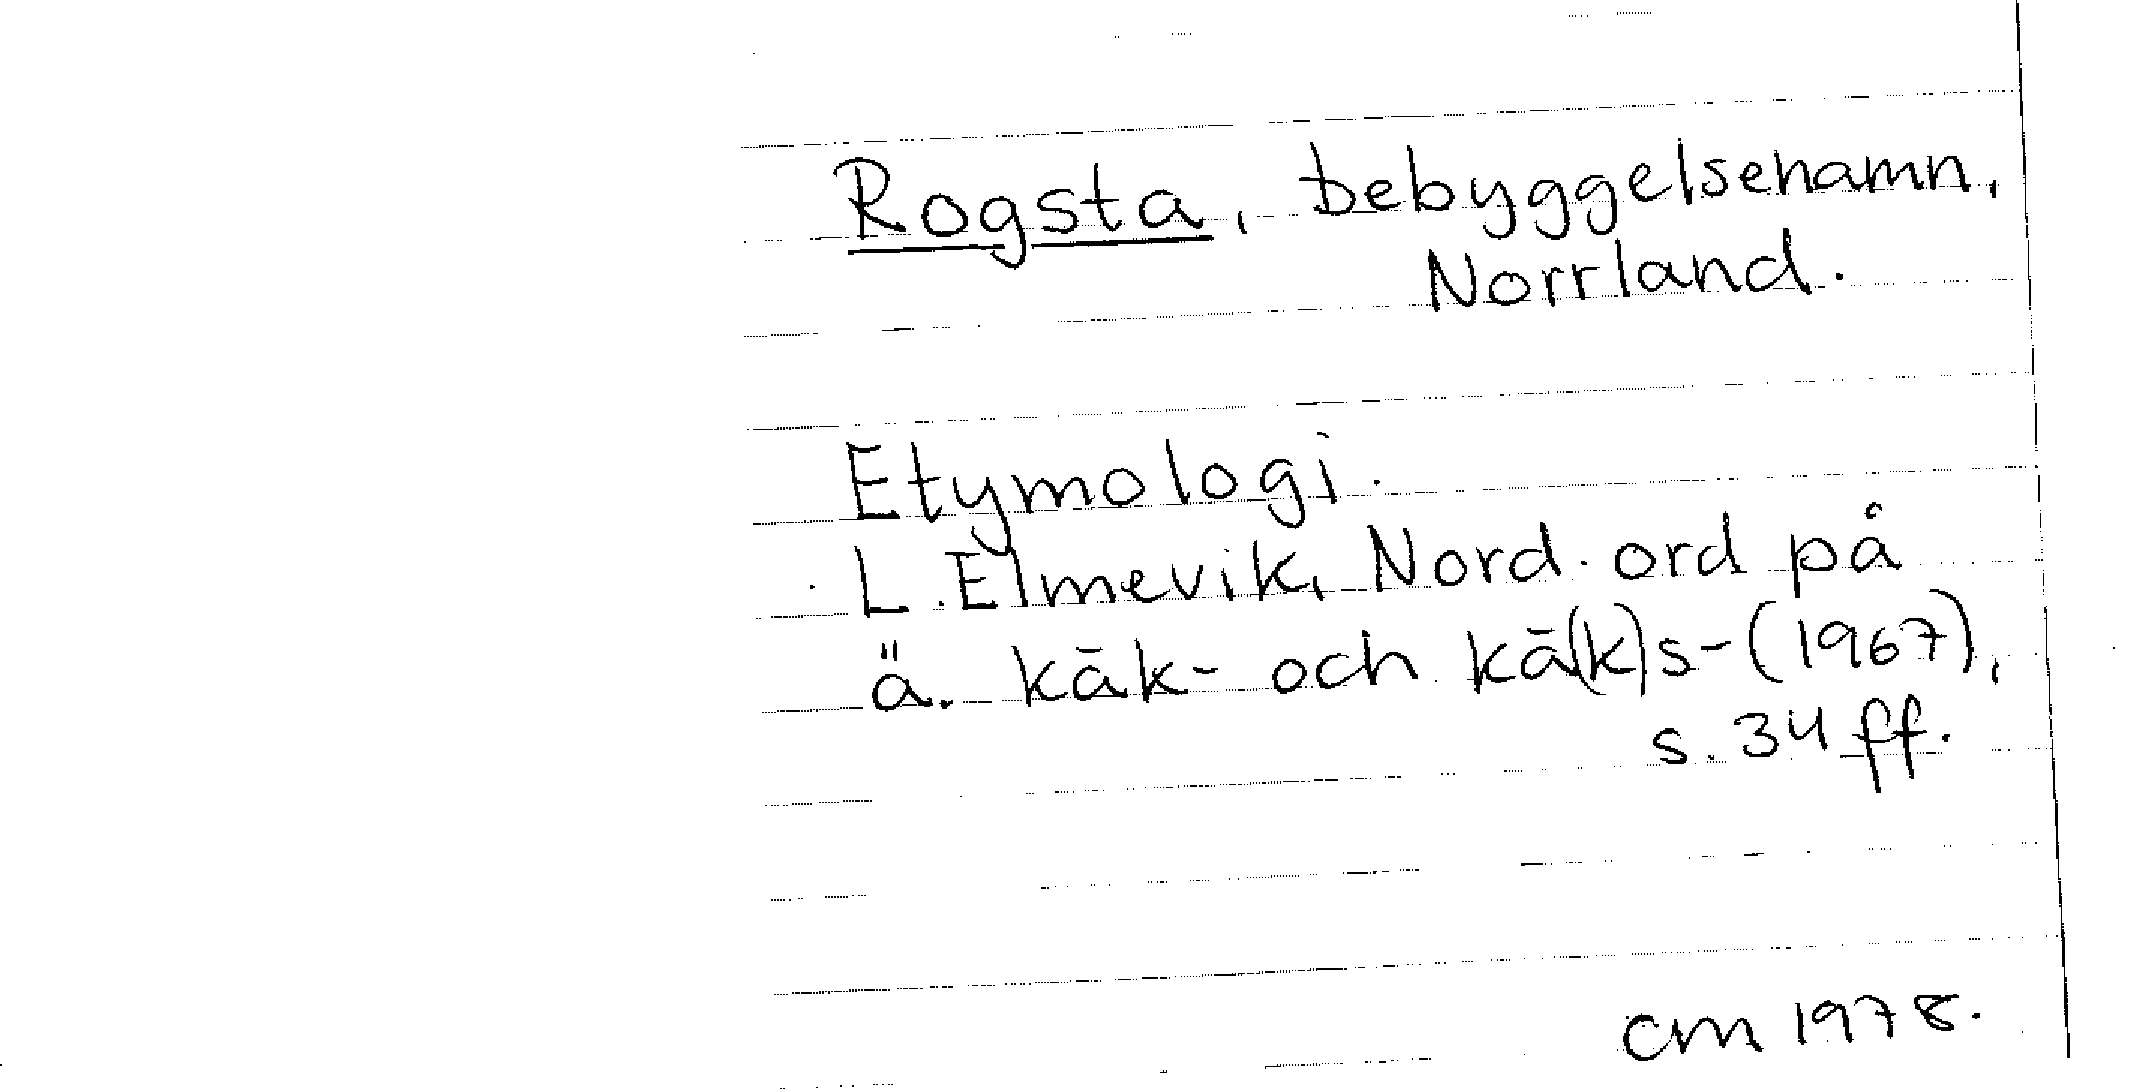 Rogsta, bebyggelsenamn,
Norrland.
Etymologi.
L. Elmevik, Nord. ord på
ä. kāk- och kā(k)s- (1967),
s. 34 ff.
CM 1978.